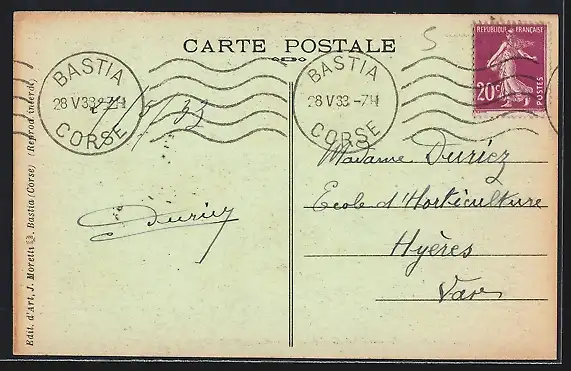 CARTE POSTALE
5
RÉPUBLIQUE FRANÇAISE
20c
POSTES
BASTIA
28 V 33 -7H
CORSE
BASTIA
28 V 33 -7H
CORSE
Duriez
Madame Duriez
Ecole d'Horticulture
Hyères
Var
Edit. d'Art, J. Moretti, Bastia (Corse) (Reprod interdite)